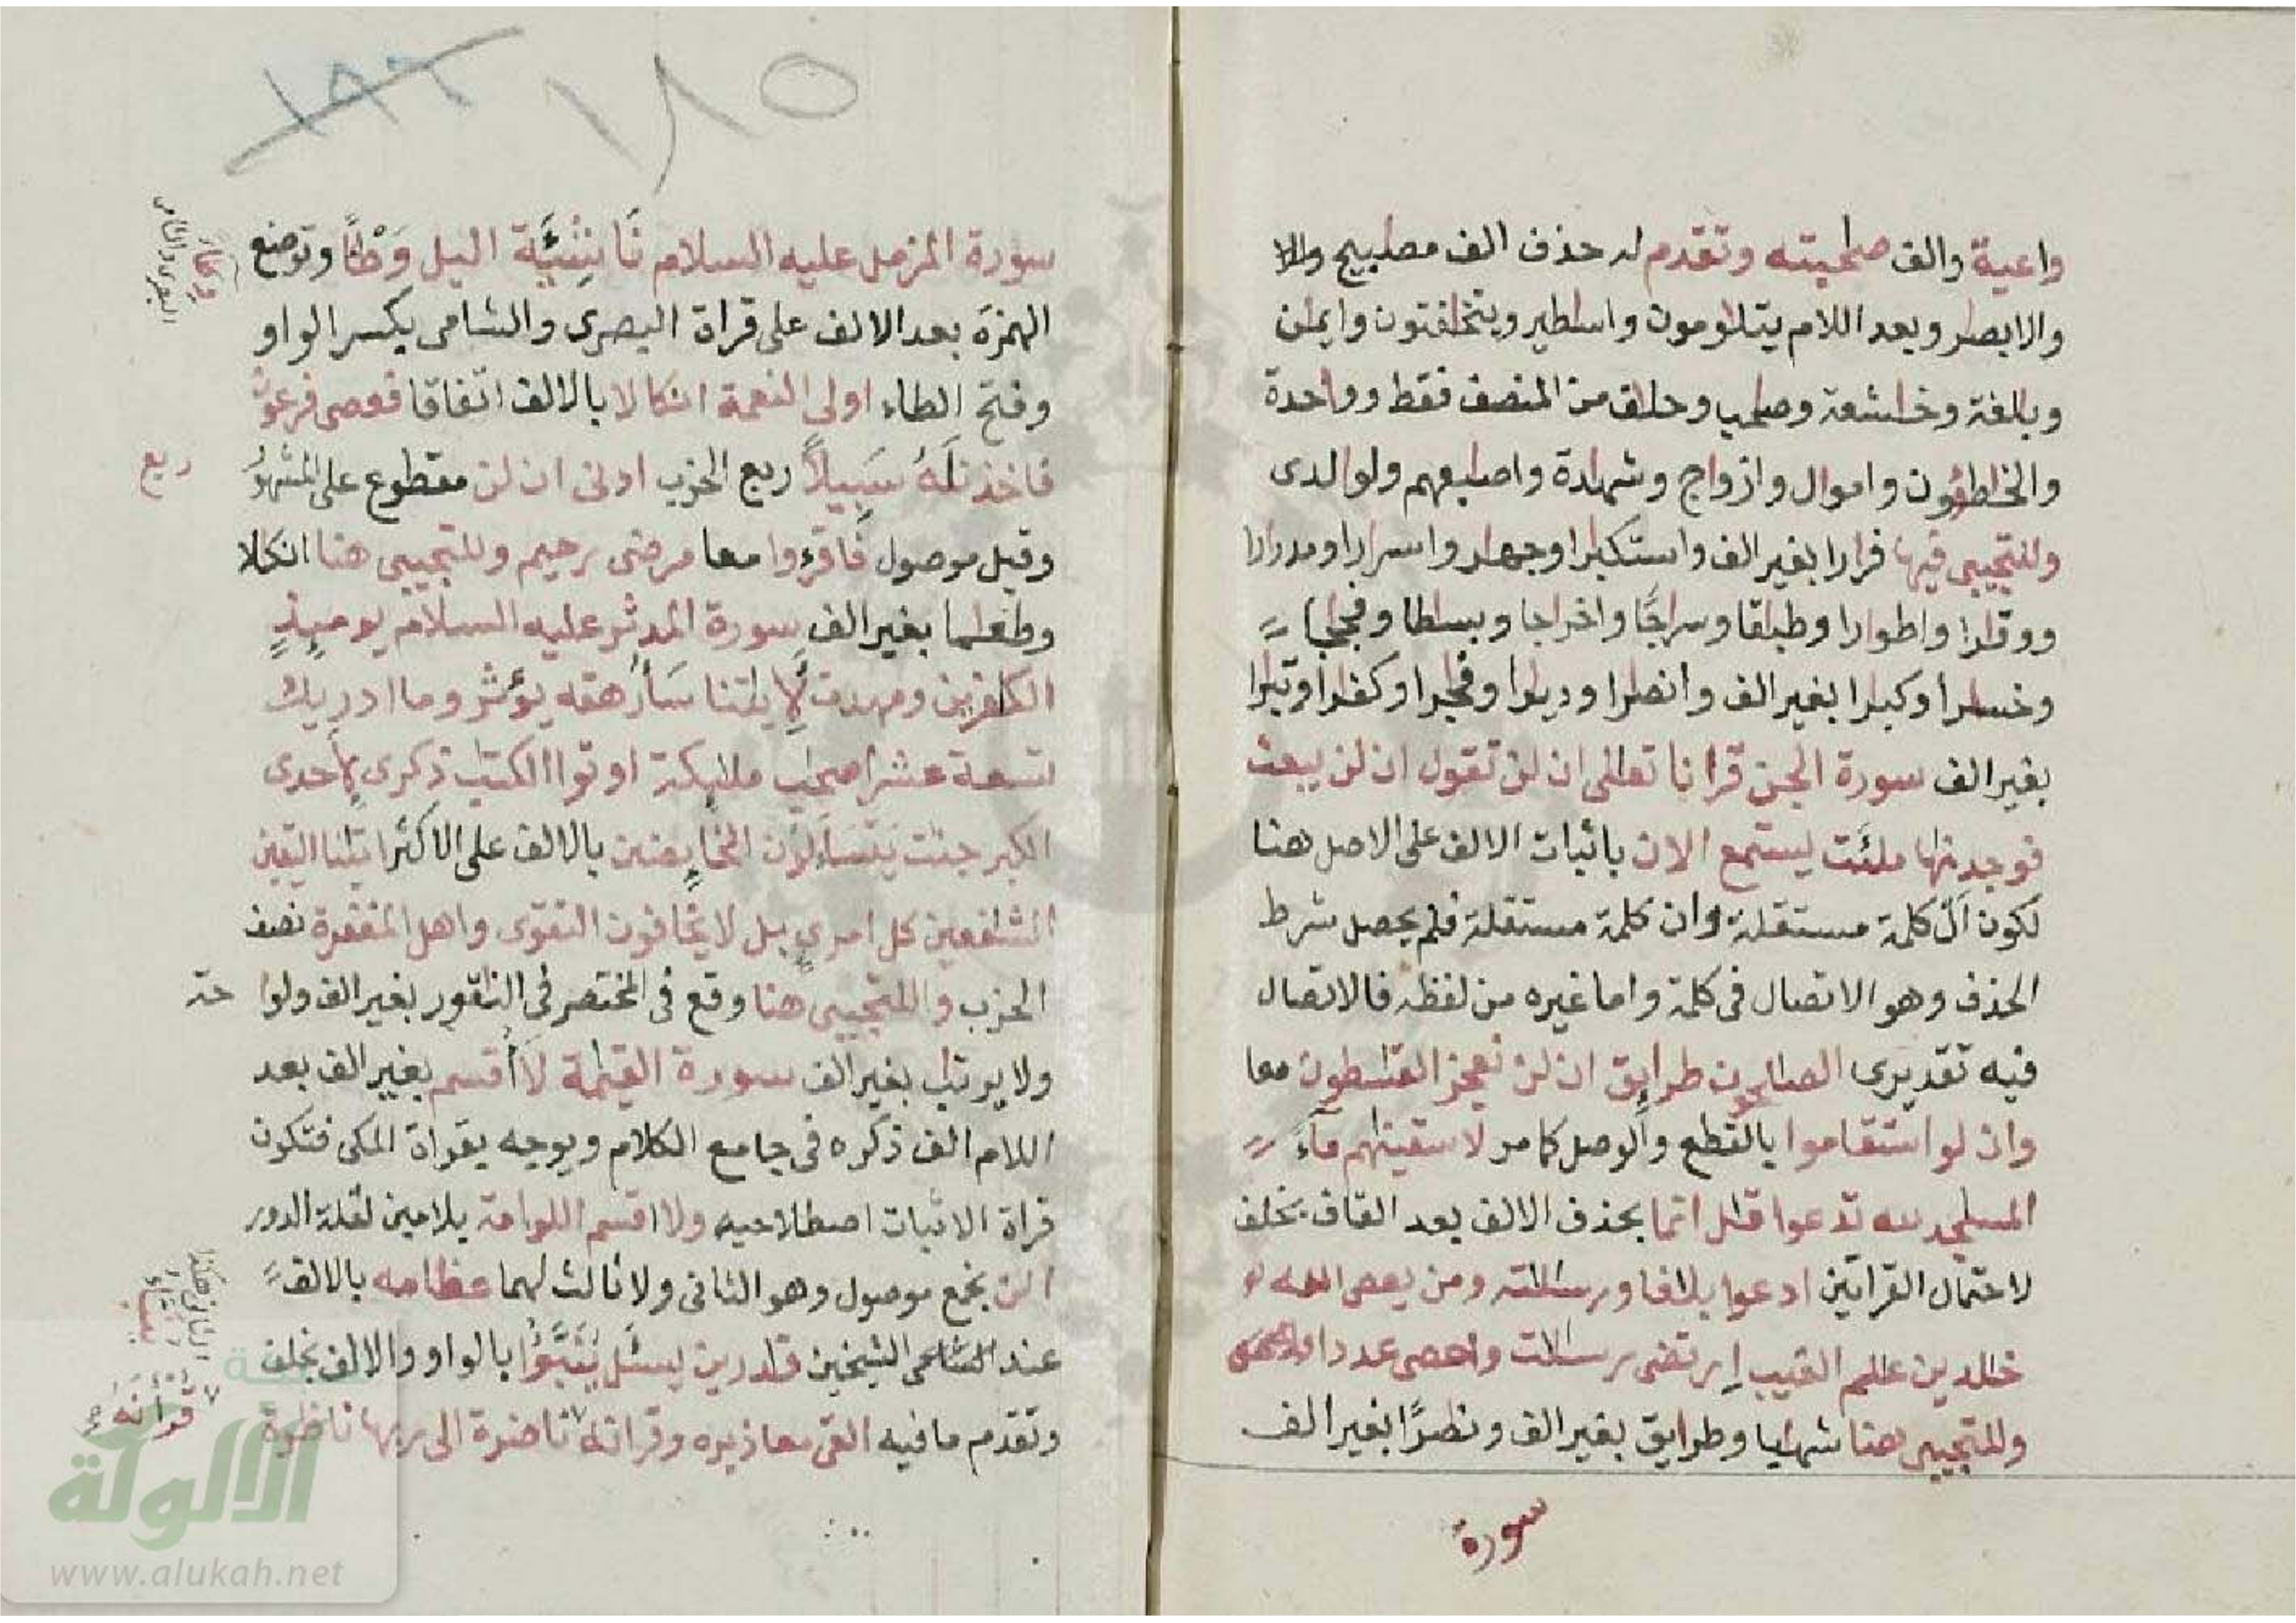 واعية والف صٰحبته وتقدم له حذف الف مصٰبيح والا
والابصٰر وبعد اللام يتلٰومون واسٰطير ويتخٰفتون وايمٰن
وبٰلغة وخٰشعة وصٰحب وحلٰاف من المنصف فقط وواحدة
والخٰطئون واموال وازواج وشهٰدة واصٰبعهم ولوالدى
وللتجيبى فيها فرارا بغير الف واستكبٰرا وجهٰرا واسرارا ومدرارا
ووقٰرا واطوارا وطبٰقا وسراجًا واخراجا وبسٰطا وفجٰجا
وخسٰرا وكبٰرا بغير الف وانصٰرا وديٰرا وفٰجرا وكفٰرا وتبٰرا
بغير الف سورة الجن قرانا تعالى ان لن تقول ان لن يبعث
فوجدنٰها ملئت يستمع الان باثبات الالف على الاصل هنا
لكون آل كلمة مستقلة وان كلمة مستقلة فلم يحصل شرط
الحذف وهو الاتصال فى كلمة واما غيره من لفظه فالاتصال
فيه تقديرى الصٰلحون طرايق ان لن نعجز القٰسطون معا
وان لو استقاموا بالقطع والوصل كما مر لاسقينٰهم مآءً
المسٰجد لله تدعوا قٰل انما بحذف الالف بعد القاف بخلف
لاحتمال القراتين ادعوا بلٰغا ورسٰلته ومن يعص الله
خٰلدين عٰلم الغيب ارتضى رسالات واحصى عددا
وللتجيبى هنا شهٰبا وطرايق بغير الف ونصٰرًا بغير الف
سورة
١٨٥
١٨٦
سورة المزمل عليه السلام نَاشِئَة اليل وَطْئًا وتوضع
الهمزة بعد الالف على قراة البصرى والشامى بكسر الواو
وفتح الطاء اولى النعمة انكالا بالالف اتفاقا فعصى فرعون
فاخذنٰهُ سَبِيلًا ربع الحزب ادنى ان لن مقطوع على المشهور
وقيل موصول فَاقرءوا معا مرضى رحيم وللتجيبى هنا انكلا
وطعٰما بغير الف سورة المدثر عليه السلام يومئِذٍ
الكٰفرين ومهدت لِأيٰتنا سَأُرهقه يؤثر وما ادريك
تسعة عشر اصحٰب ملٰئكة اوتوا الكتٰب ذكرى لِاحدى
الكبر جنٰت يَتَسَاءَلون الخَائِضين بالالف على الاكثر اتٰنا اليقين
الشٰفعين كل امرئٍ بل لا يخَافون التقوى واهل المغفرة نصف
الحزب والتجيبى هنا وقع فى المختصر فى النٰقور بغير الف ولوا حة
ولا يرتٰب بغير الف سورة القيٰمة لَأُقسم بغير الف بعد
اللام الف ذكره فى جامع الكلام ويوجه بقراة المكى فتكون
قراة الاثبات اصطلاحيه ولا اقسم اللوامة بلامين لقلة الدور
الن نجمع موصول وهو الثانى ولا ثالث لهما عظامه بالالف
عند الشيخين قٰدرين يسئل يُنَبَّؤُا بالواو والالف بخلف
وتقدم ما فيه القى معاذيره وقرانه ناضرة الى ربها ناظرة
وِطَاءً
البصرى والشامى
ربع
قرأنَهُ
الألوكة
www.alukah.net